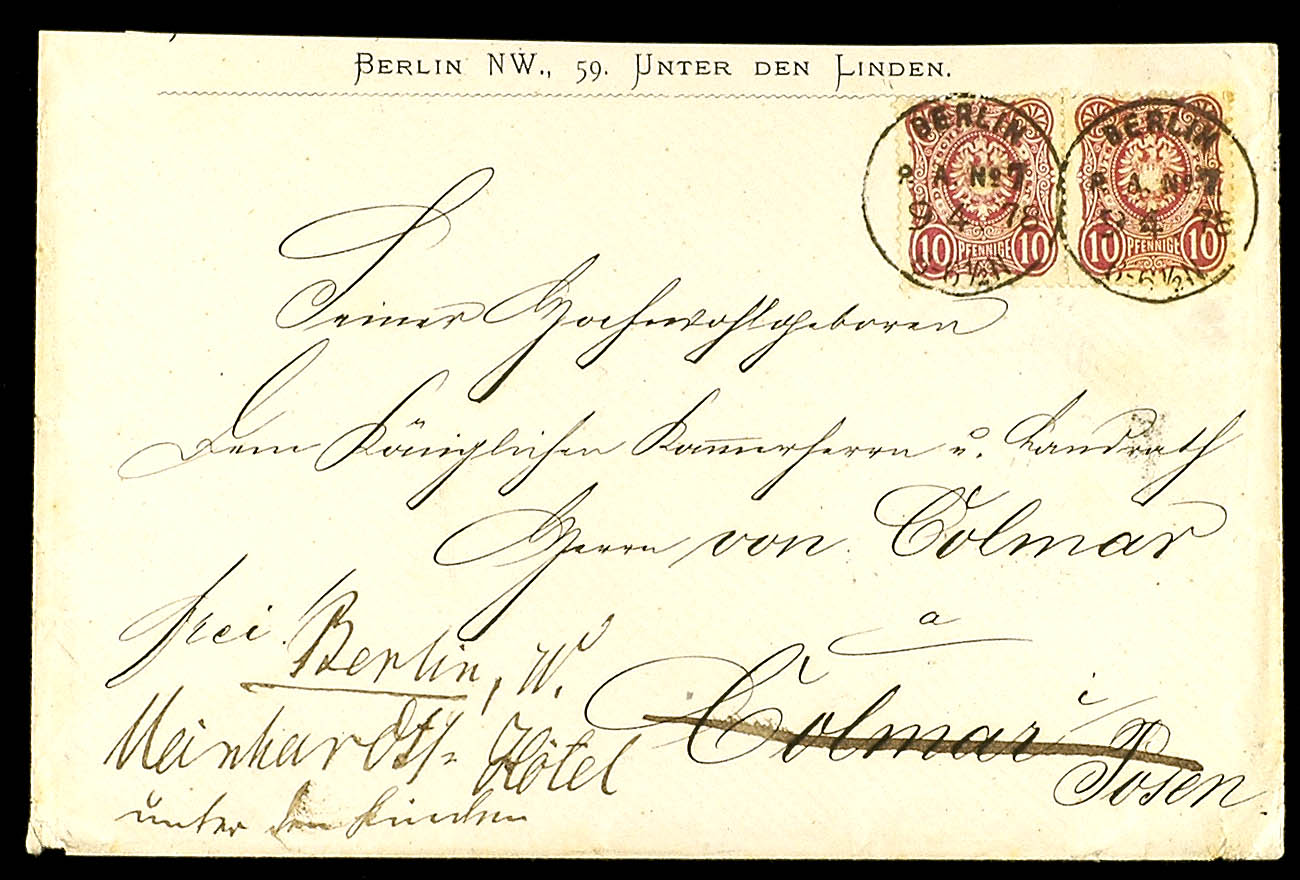 BERLIN NW., 59. UNTER DEN LINDEN.
BERLIN
P. A. No 7
9 4 78
6-6½N
BERLIN
P. A. No 7
9 4 78
6-6½N
10 PFENNIGE 10
10 PFENNIGE 10
Seiner Hochwohlgeboren
Dem Königlichen Kam̅erherrn u. Landrath
Herrn von Colmar
a
Colmar i/
Posen
frei
Berlin, W.
Meinhardt's Hôtel
unter den Linden